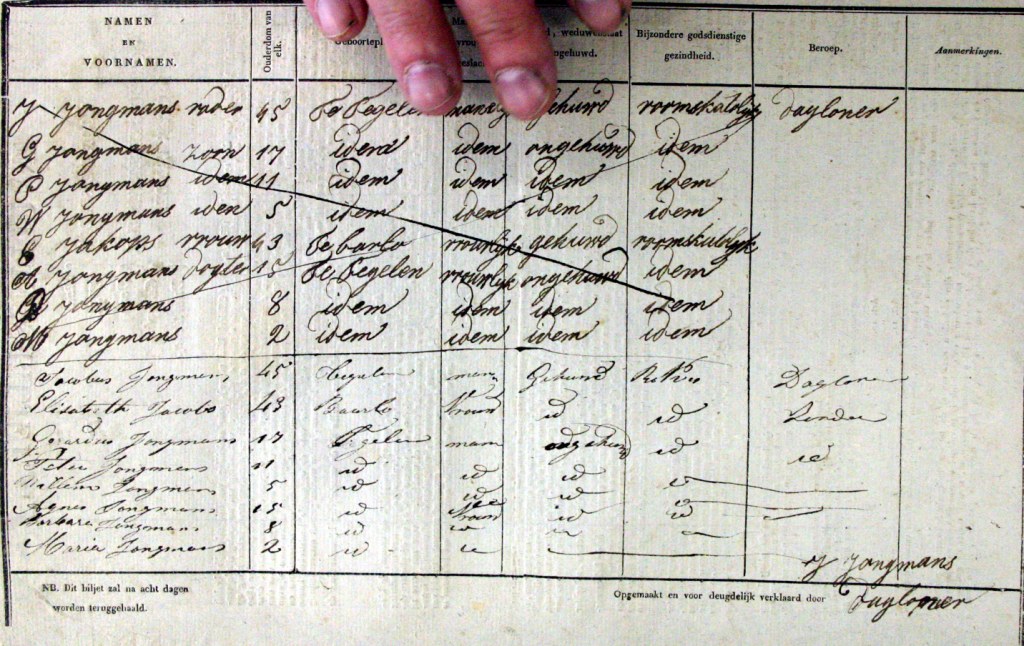 NAMEN EN VOORNAMEN. Ouderdom van elk. weduwenstaat ongehuwd. Bijzondere godsdienstige gezindheid. Beroep. Aanmerkingen.
J Jongmans vader 45 Te Tegelen gehuwd roomskatolyk dagloner
G Jongmans zoon 17 idem idem ongehuwd idem
P Jongmans idem 11 idem idem idem idem
W Jongmans idem 5 idem idem idem idem
E Jakops vrouw 43 Te barlo vrouwlyk gehuwd roomskatolyk
A Jongmans dogter 15 Te Tegelen vrouwlyk ongehuwd idem
B Jongmans 8 idem idem idem idem
M Jongmans 2 idem idem idem idem
Jacobus Jongmans 45 Tegelen man gehuwd Dagloner
Elisabeth Jacobs 43 Baarlo vrouw id id
Gerardus Jongmans 17 Tegelen man ongehuwd id id
Peter Jongmans 11 id id id
Willem Jongmans 5 id id id id
Agnes Jongmans 15 id vrouw id id
Barbara Jongmans 8 id id
Maria Jongmans 2 id id
J Jongmans
NB. Dit biljet zal na acht dagen worden teruggehaald.
Opgemaakt en voor deugdelijk verklaard door dagloner